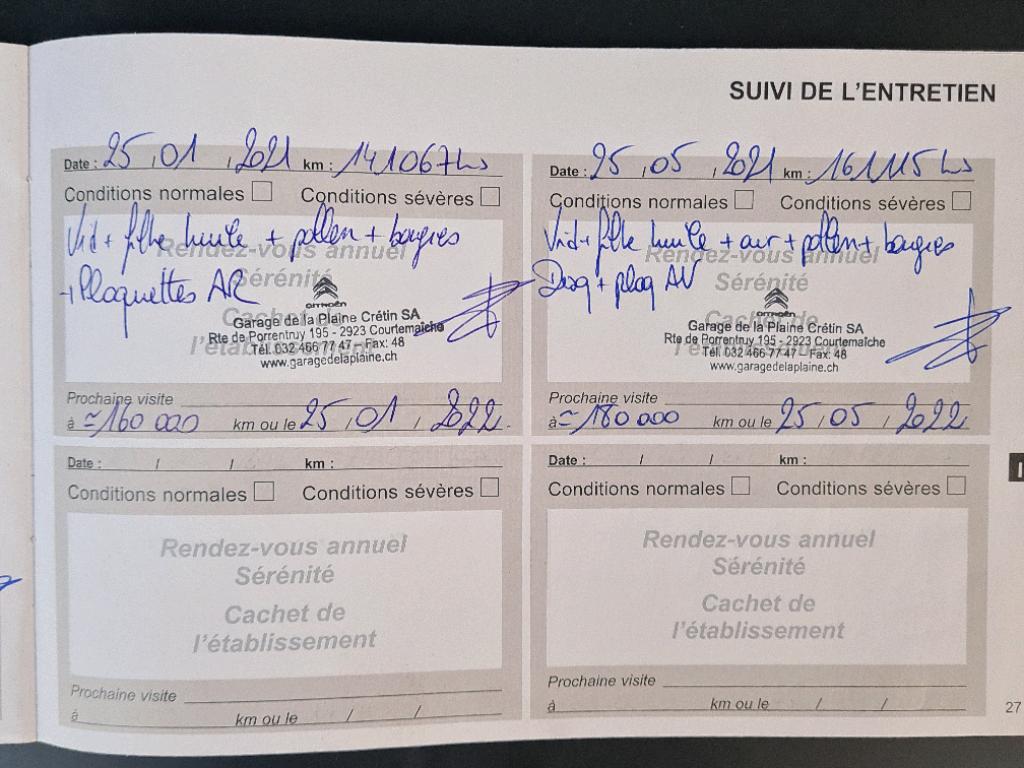 SUIVI DE L'ENTRETIEN
Date : 25 / 01 / 2021 km : 141067 km
Conditions normales Conditions sévères
Vid + filtre huile + pollen + bougies
+ Plaquettes AR
Rendez-vous annuel
Sérénité
Cachet de
l'établissement
CITROËN
Garage de la Plaine Crétin SA
Rte de Porrentruy 195 - 2923 Courtemaîche
Tél. 032 466 77 47 - Fax: 48
www.garagedelaplaine.ch
Prochaine visite
à ≃ 160 000 km ou le 25 / 01 / 2022
Date : 25 / 05 / 2021 km : 161115 km
Conditions normales Conditions sévères
Vid + filtre huile + air + pollen + bougies
Disq + plaq AV
Rendez-vous annuel
Sérénité
Cachet de
l'établissement
CITROËN
Garage de la Plaine Crétin SA
Rte de Porrentruy 195 - 2923 Courtemaîche
Tél. 032 466 77 47 - Fax: 48
www.garagedelaplaine.ch
Prochaine visite
à ≃ 180 000 km ou le 25 / 05 / 2022
Date : / / km :
Conditions normales Conditions sévères
Rendez-vous annuel
Sérénité
Cachet de
l'établissement
Prochaine visite
à km ou le / /
Date : / / km :
Conditions normales Conditions sévères
Rendez-vous annuel
Sérénité
Cachet de
l'établissement
Prochaine visite
à km ou le / /
27